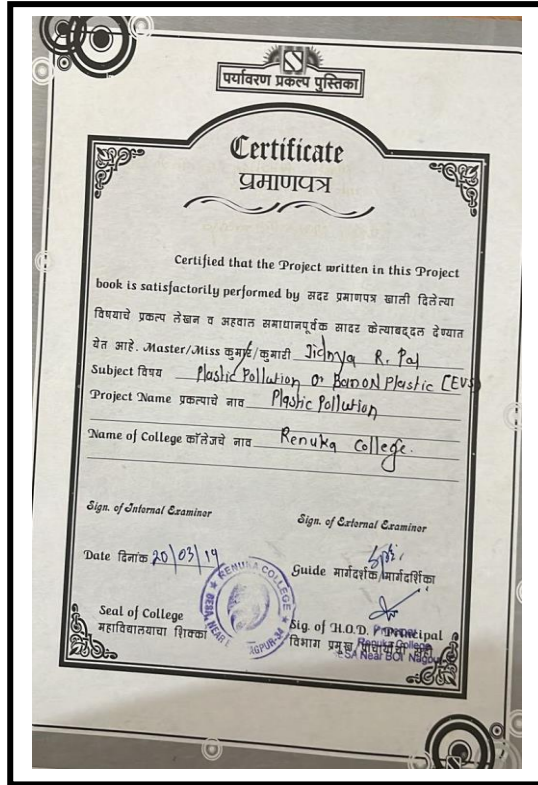 पर्यावरण प्रकल्प पुस्तिका
Certificate
प्रमाणपत्र
Certified that the Project written in this Project
book is satisfactorily performed by सदर प्रमाणपत्र खाली दिलेल्या
विषयाचे प्रकल्प लेखन व अहवाल समाधानपूर्वक सादर केल्याबद्दल देण्यात
येत आहे. Master/Miss कुमार/कुमारी Jidnya R. Pal
Subject विषय Plastic Pollution or Ban ON Plastic (EVS)
Project Name प्रकल्पाचे नाव Plastic Pollution
Name of College कॉलेजचे नाव Renuka College.
Sign. of Internal Examinor
Sign. of External Examinor
Date दिनांक 20/03/19
Guide मार्गदर्शक/मार्गदर्शिका
RENUKA COLLEGE
BESA, NEAR
Seal of College
महाविद्यालयाचा शिक्का
Sig. of H.O.D. / Principal
विभाग प्रमुख/प्राचार्यांची सही
Principal
Renuka College
ESA Near BOI Nagpur